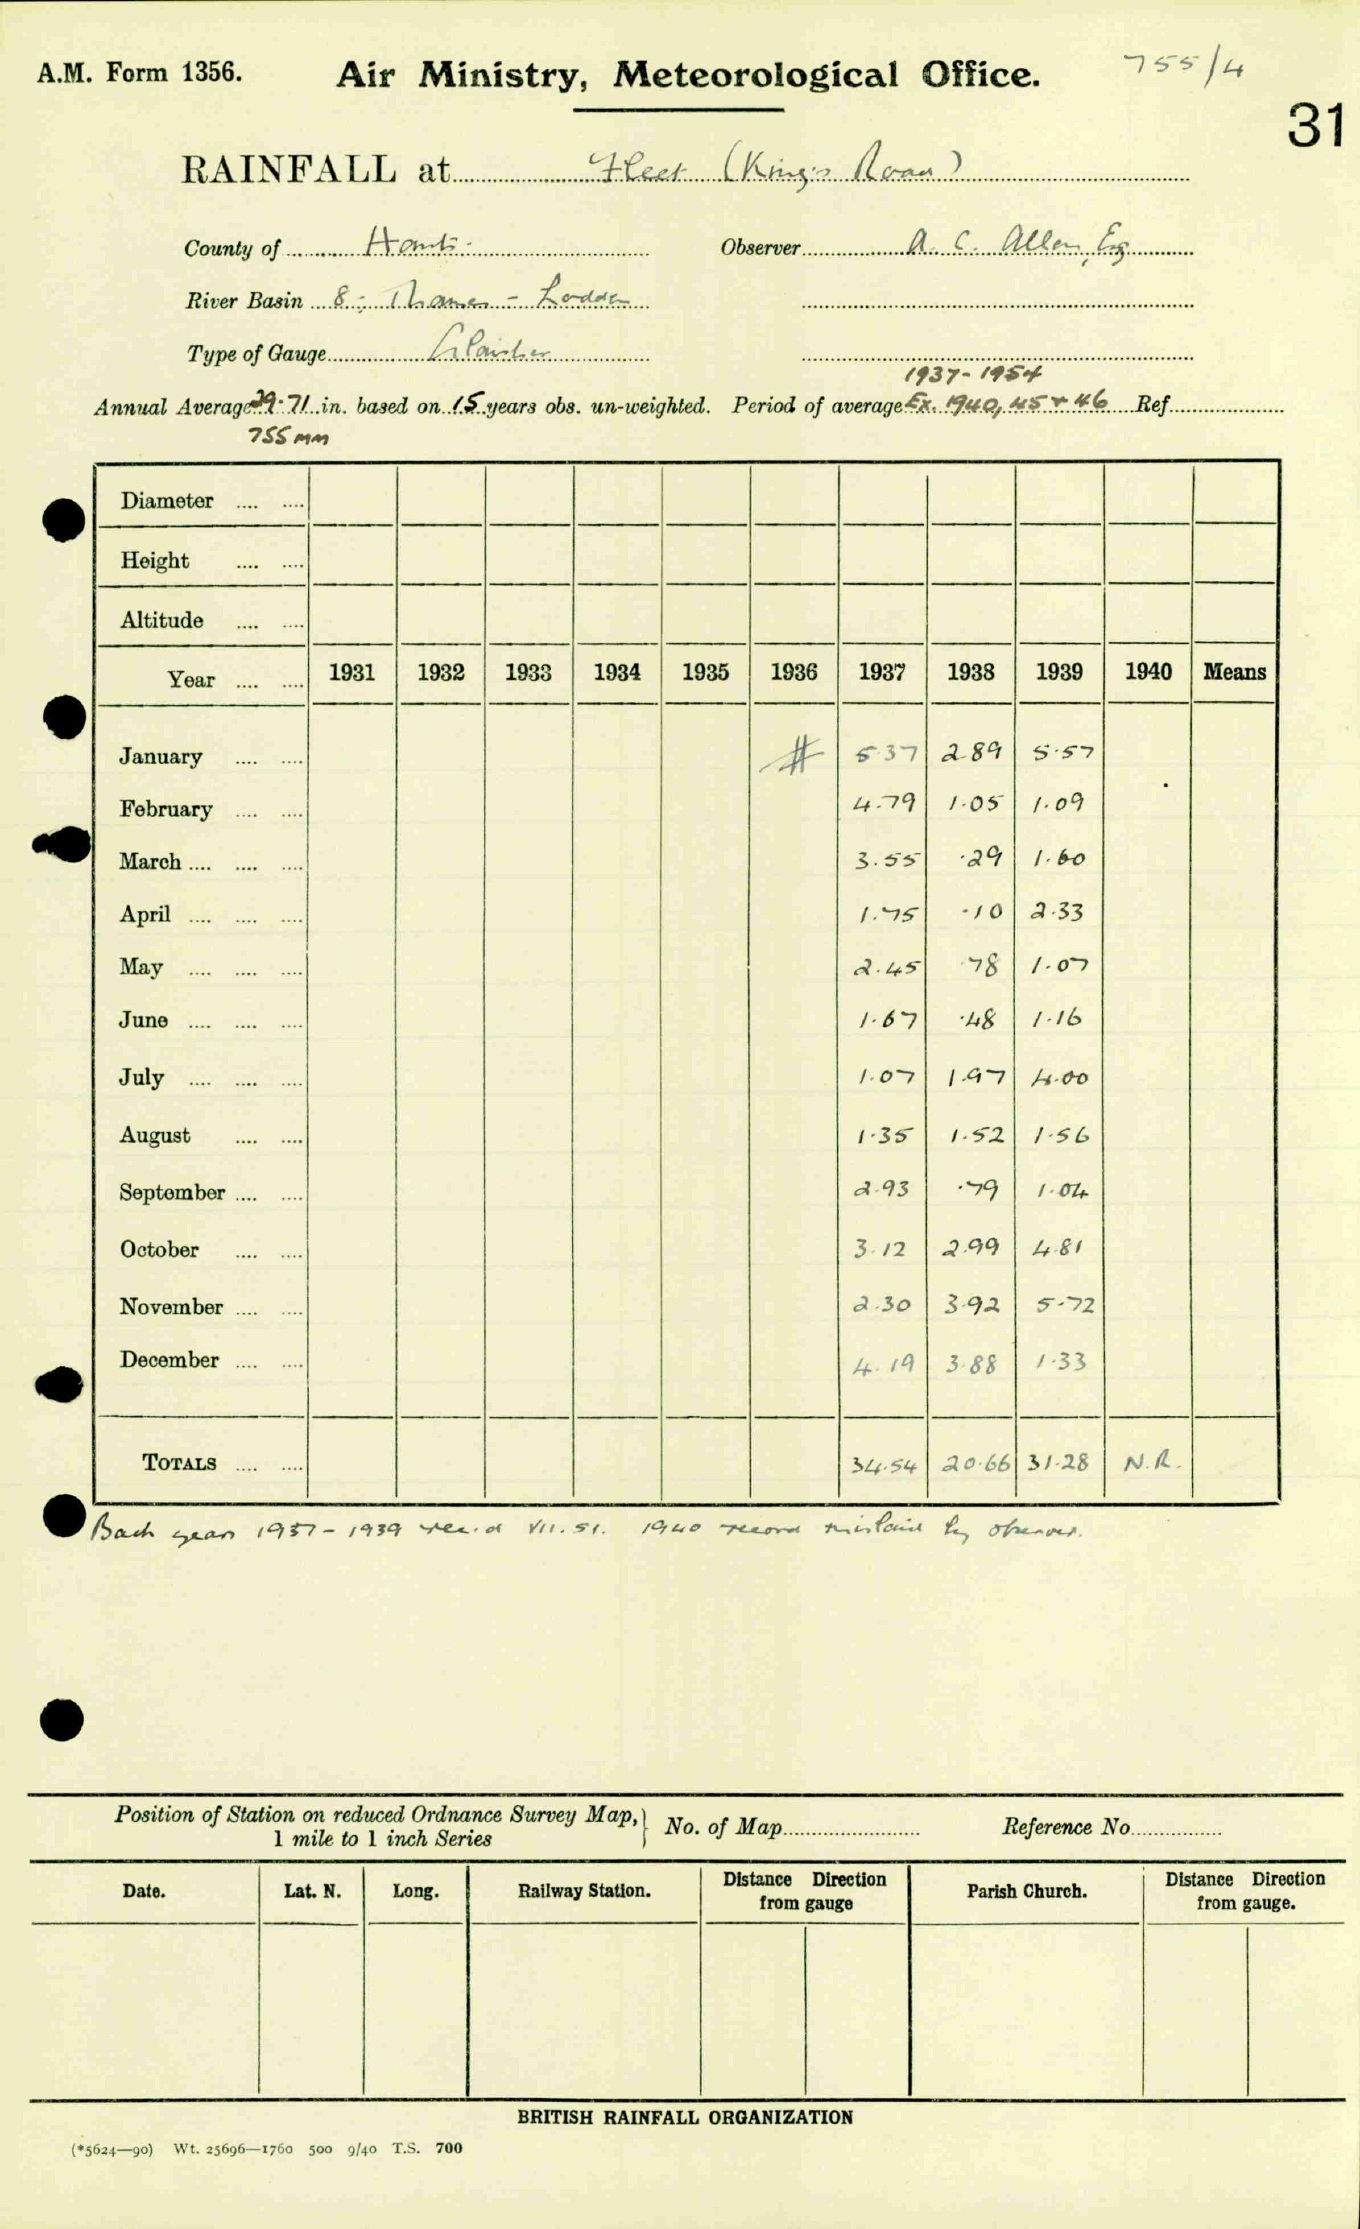 A.M. Form 1356. Air Ministry, Meteorological Office. 755/4
31
RAINFALL at Fleet (King's Road)
County of Hants. Observer A. C. Allen, Esq
River Basin 8: Thames - Loddon
Type of Gauge Glaisher
1937-1954
Annual Average 29.71 in. based on 15 years obs. un-weighted. Period of average Ex. 1940, 45 + 46 Ref.
755 mm
Diameter
Height
Altitude
Year 1931 1932 1933 1934 1935 1936 1937 1938 1939 1940 Means
January # 5.37 2.89 5.57
February 4.79 1.05 1.09
March 3.55 .29 1.60
April 1.75 .10 2.33
May 2.45 .78 1.07
June 1.67 .48 1.16
July 1.07 1.97 4.00
August 1.35 1.52 1.56
September 2.93 .79 1.04
October 3.12 2.99 4.81
November 2.30 3.92 5.72
December 4.19 3.88 1.33
TOTALS 34.54 20.66 31.28 N.R.
Back years 1937-1939 rec.d VII.51. 1940 record mislaid by observer.
Position of Station on reduced Ordnance Survey Map, No. of Map Reference No.
1 mile to 1 inch Series
Date. Lat. N. Long. Railway Station. Distance Direction from gauge Parish Church. Distance Direction from gauge.
BRITISH RAINFALL ORGANIZATION
(*5624—90) Wt. 25696—1760 500 9/40 T.S. 700